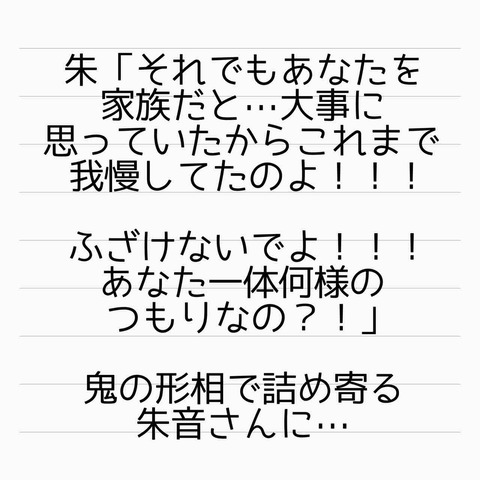 朱「それでもあなたを
家族だと…大事に
思っていたからこれまで
我慢してたのよ！！！
ふざけないでよ！！！
あなた一体何様の
つもりなの？！」
鬼の形相で詰め寄る
朱音さんに…